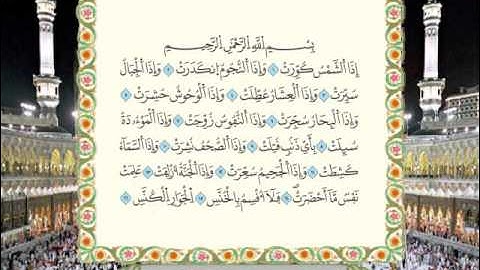 بِسْمِ اللَّهِ الرَّحْمَٰنِ الرَّحِيمِ
إِذَا الشَّمْسُ كُوِّرَتْ ١ وَإِذَا النُّجُومُ انكَدَرَتْ ٢ وَإِذَا الْجِبَالُ
سُيِّرَتْ ٣ وَإِذَا الْعِشَارُ عُطِّلَتْ ٤ وَإِذَا الْوُحُوشُ حُشِرَتْ ٥
وَإِذَا الْبِحَارُ سُجِّرَتْ ٦ وَإِذَا النُّفُوسُ زُوِّجَتْ ٧ وَإِذَا الْمَوْءُودَةُ
سُئِلَتْ ٨ بِأَيِّ ذَنبٍ قُتِلَتْ ٩ وَإِذَا الصُّحُفُ نُشِرَتْ ١٠ وَإِذَا السَّمَاءُ
كُشِطَتْ ١١ وَإِذَا الْجَحِيمُ سُعِّرَتْ ١٢ وَإِذَا الْجَنَّةُ أُزْلِفَتْ ١٣ عَلِمَتْ
نَفْسٌ مَّا أَحْضَرَتْ ١٤ فَلَا أُقْسِمُ بِالْخُنَّسِ ١٥ الْجَوَارِ الْكُنَّسِ ١٦